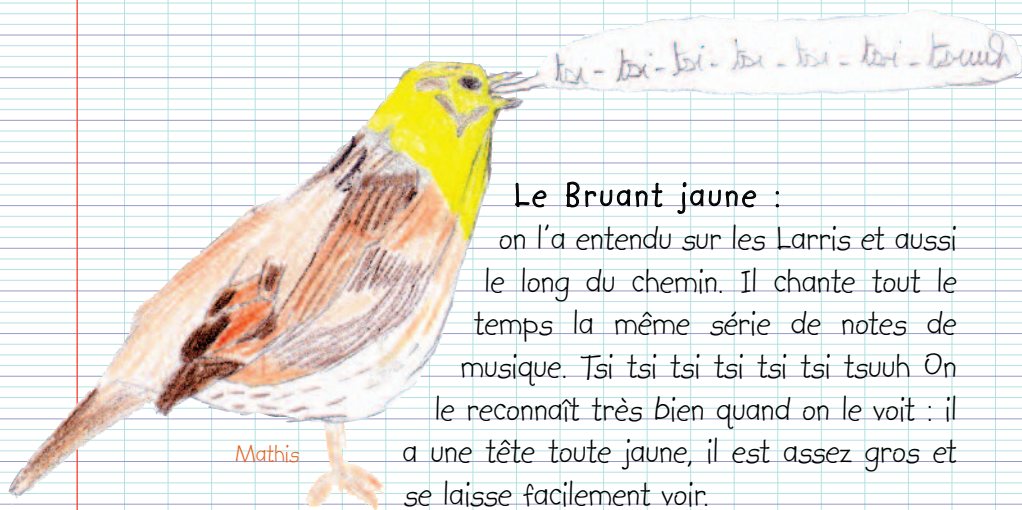 tsi - tsi - tsi - tsi - tsi - tsi - tsuuh
Le Bruant jaune :
on l'a entendu sur les Larris et aussi
le long du chemin. Il chante tout le
temps la même série de notes de
musique. Tsi tsi tsi tsi tsi tsi tsuuh On
le reconnaît très bien quand on le voit : il
a une tête toute jaune, il est assez gros et
se laisse facilement voir.
Mathis